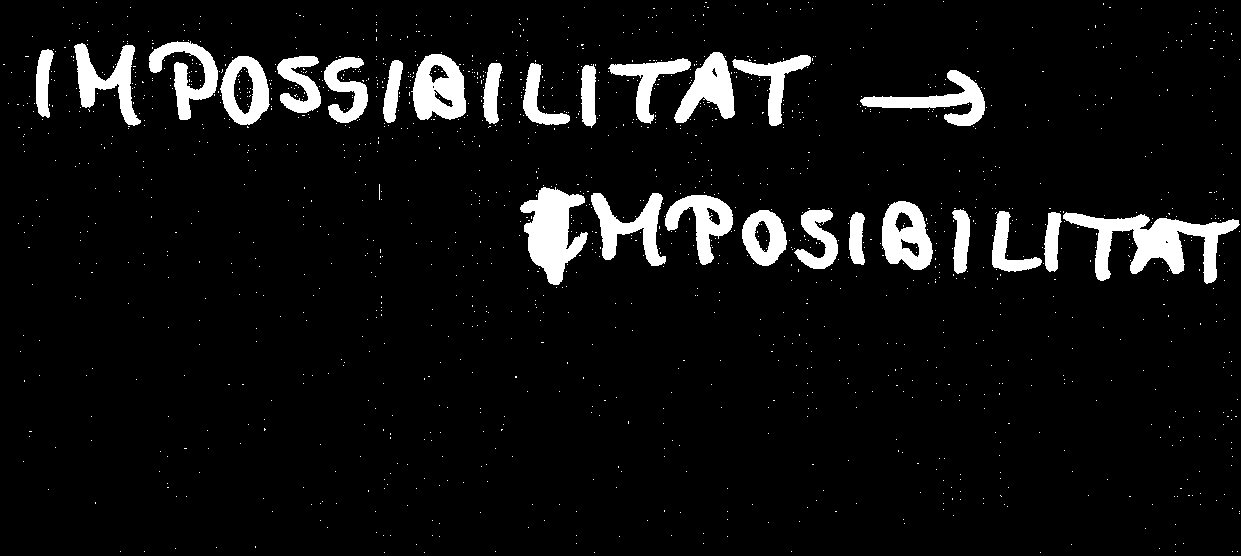 IMPOSSIBILITAT →
IMPOSIBILITAT